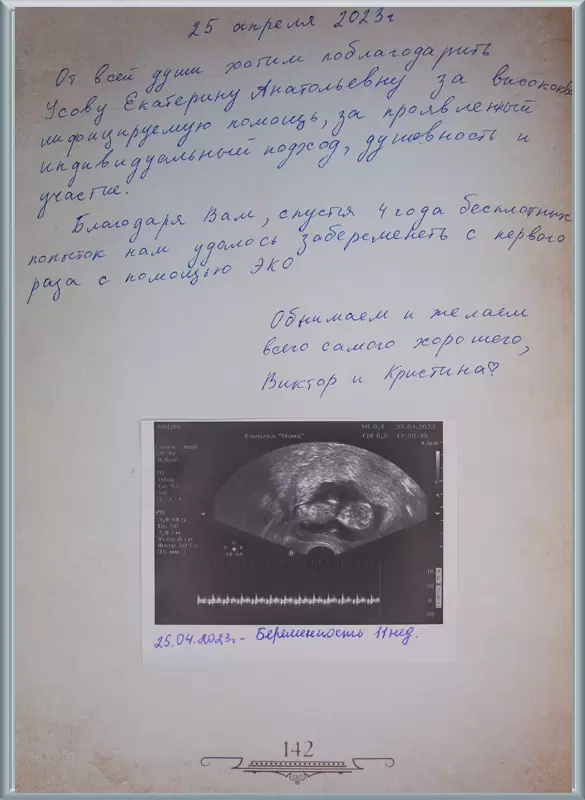 25 апреля 2023г
От всей души хотим поблагодарить
Усову Екатерину Анатольевну за высококва
лифицируемую помощь, за проявленный
индивидуальный подход, душевность и
участие.
Благодаря Вам, спустя 4 года бесплотных
попыток нам удалось забеременеть с первого
раза с помощью ЭКО
Обнимаем и желаем
всего самого хорошего,
Виктор и Кристина♡
PHILIPS
Клиника "Мама"
MI 0,4
25.04.2023
ТIK 0,5
12:50:49
25.04.2023г. - Беременность 11 нед.
142